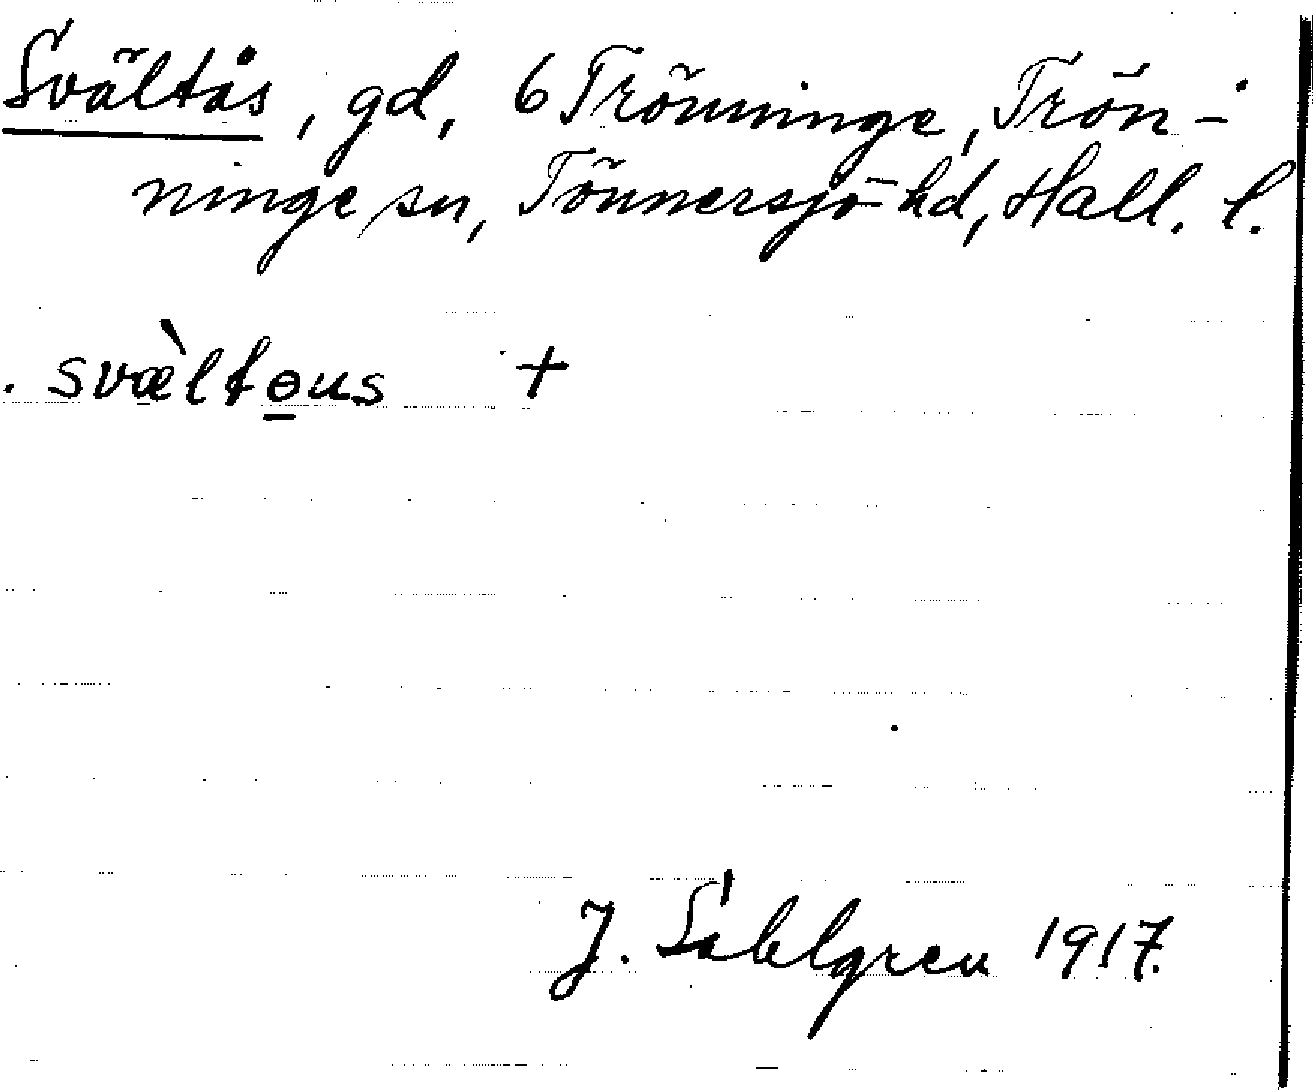 Svältås, gd, 6 Trönninge, Trön-
ninge sn, Tönnersjö hd, Hall. l.
svæ̀ltɵus +
J. Sahlgren 1917.